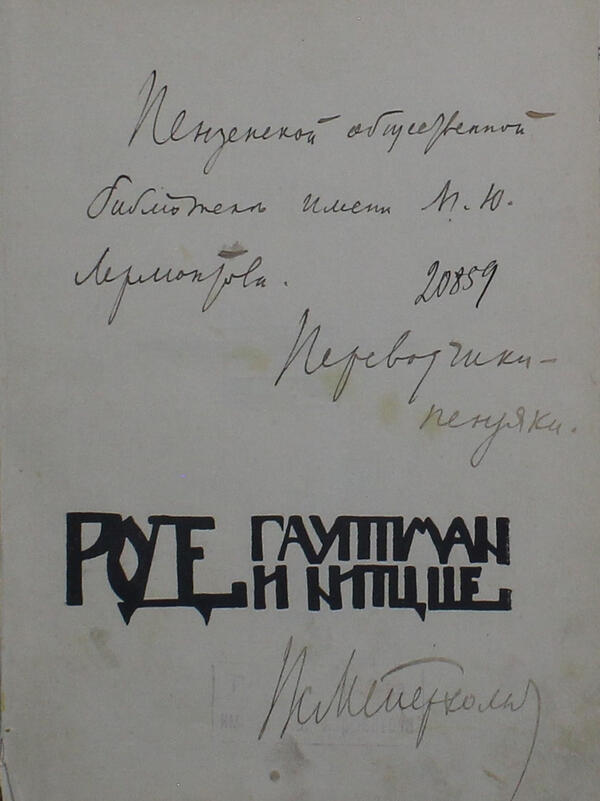 Пензенской общественной
библiотекѣ имени М. Ю.
Лермонтова. 20859
Переводчики-
пензяки.
РОДЕ ГАУПТМАН
И НИТЦШЕ
Вс Мейерхольд